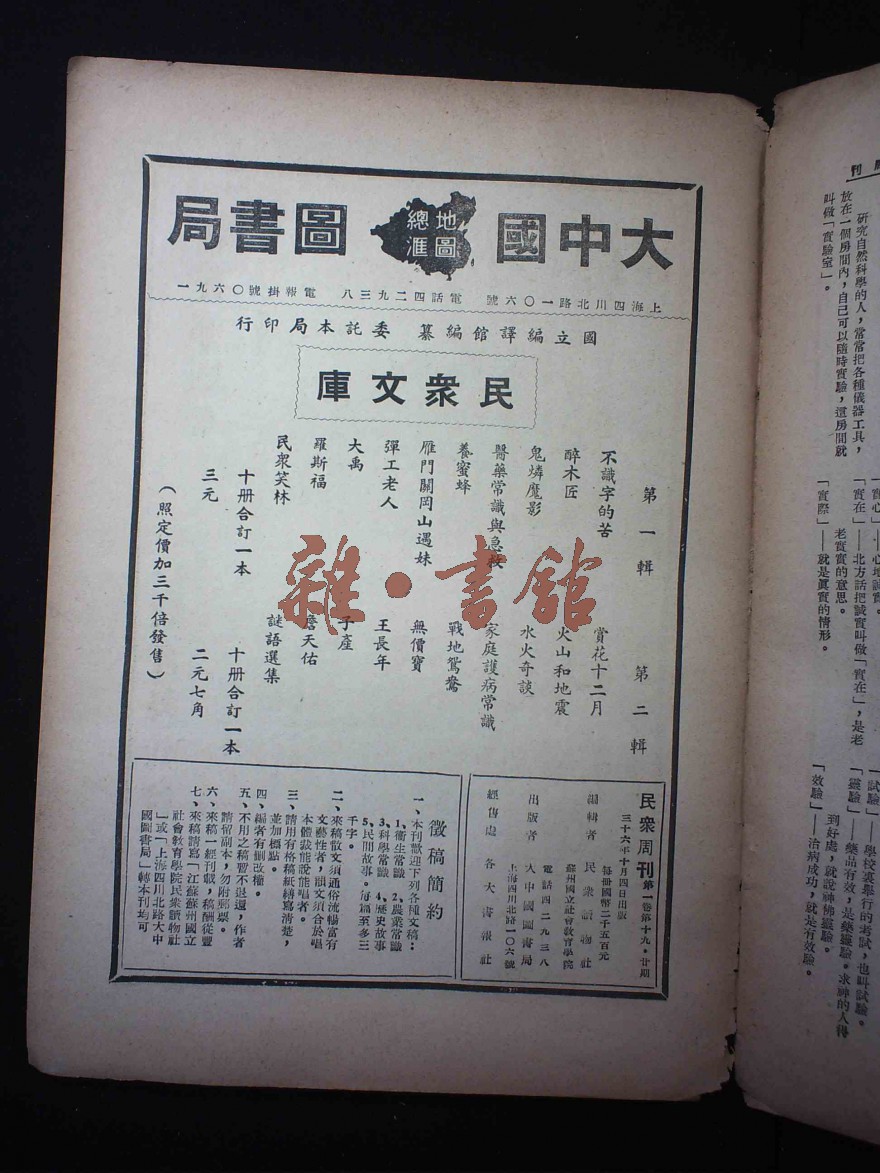 大中國
地圖
總滙
圖書局
上海四川北路一〇六號　電話四二九三八　電報掛號〇六九一
國立編譯館編纂　委託本局印行
民衆文庫
第一輯
不識字的苦
醉木匠
鬼燐魔影
醫藥常識與急救
養蜜蜂
雁門關岡山遇妹
彈工老人
大禹
羅斯福
民衆笑林
十册合訂一本
三元
第二輯
賞花十二月
火山和地震
水火奇談
家庭護病常識
戰地鴛鴦
無價寶
王長年
子產
詹天佑
謎語選集
十册合訂一本
二元七角
（照定價加三千倍發售）
民衆周刊 第一卷第十九·廿期
三十六年十月四日出版
每冊國幣二千五百元
編輯者　民衆讀物社
蘇州國立社會教育學院
出版者　大中國圖書局
電話四二九三八
上海四川北路一〇六號
經售處　各大書報社
徵稿簡約
一、本刊歡迎下列各種文稿：
1、衞生常識　2、農業常識
3、科學常識　4、歷史故事
5、民間故事。每篇至多三
千字。
二、來稿散文須通俗流暢富有
文藝性者，韻文須合於唱
本體裁能說能唱者。
三、請用有格稿紙繕寫清楚，
並加標點。
四、編者有刪改權。
五、不用之稿暫不退還，作者
請留副本，勿附郵票。
六、來稿一經刊載，稿酬從豐
七、來稿請寫「江蘇蘇州國立
社會教育學院民衆讀物社
」或「上海四川北路大中
國圖書局」轉本刊均可
雜·書館
研究自然科學的人，常常把各種儀器工具，
放在一個房間內，自己可以隨時實驗，這房間就
叫做「實驗室」。
「實心」——心地誠實。
「實在」——北方話把誠實叫做「實在」，是老
老實實的意思。
「實際」——就是眞實的情形。
「試驗」——學校裏舉行的考試，也叫試驗。
「靈驗」——藥品有效，是藥靈驗。求神的人得
到好處，就說神佛靈驗。
「效驗」——治病成功，就是有效驗。